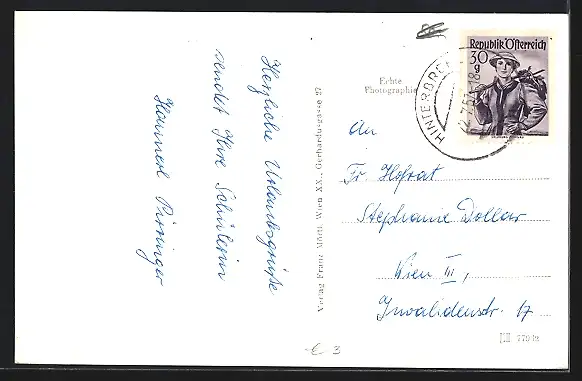 Herzliche Urlaubsgrüße
sendet Ihre Schülerin
Hannerl
Verlag Franz Mörtl, Wien XX., Gerhardusgasse 27
Echte
Photographie
Republik Österreich
30
g
HINTERBR
An
Fr. Hofrat
Stephanie Dollar
Wien III,
Invalidenstr. 17
€ 3